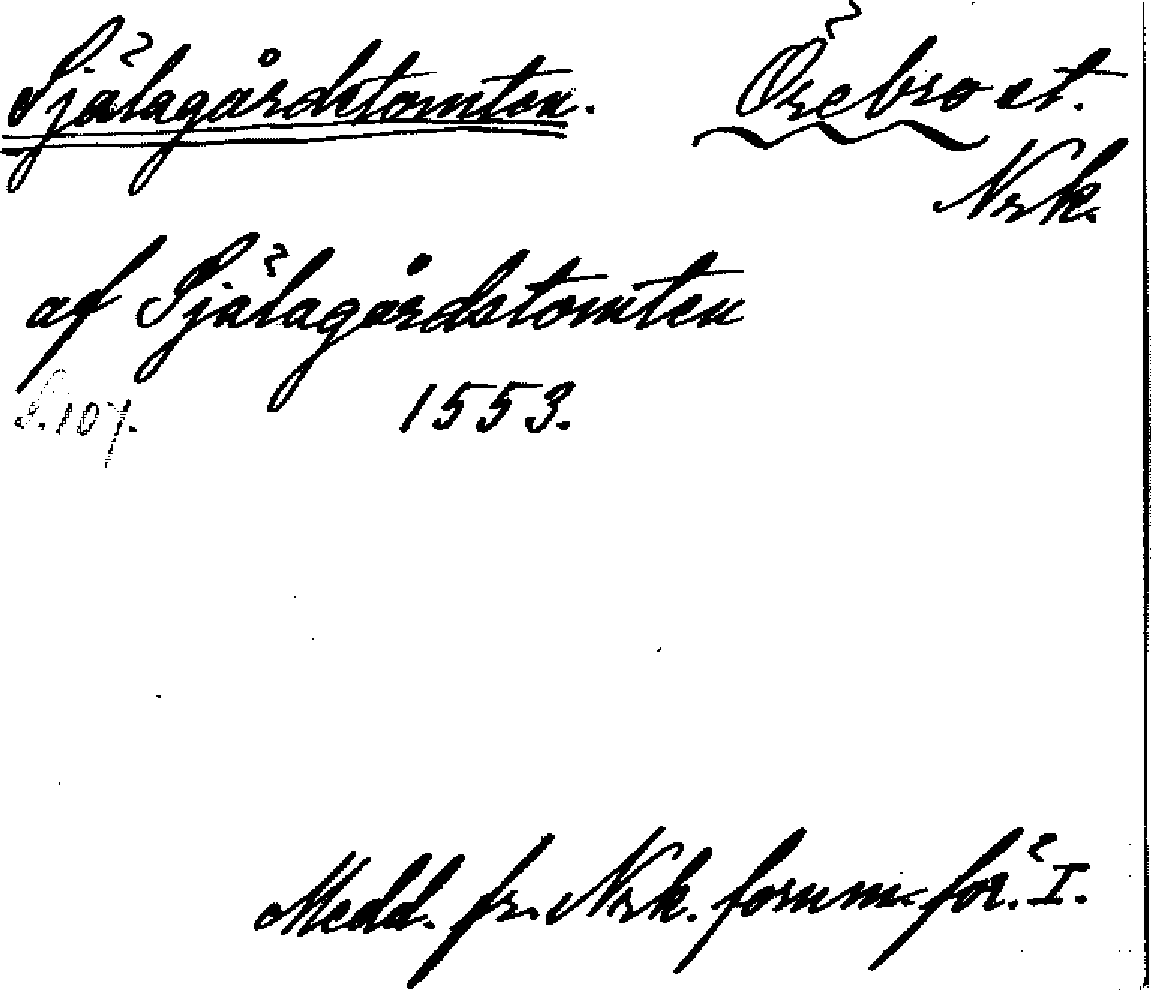 Själagårdstomten. Örebro st.
Nrk.
af Själagårdstomten
S. 107. 1553.
Medd. fr. Nrk. fornm. för. I.